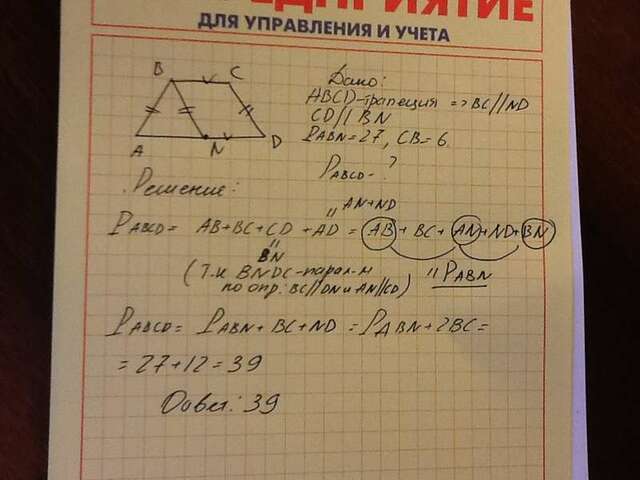 ЕДПРИЯТИЕ
ДЛЯ УПРАВЛЕНИЯ И УЧЕТА
B C
A N D
Дано:
ABCD-трапеция => BC//ND
CD // BN
PABN=27, CB=6.
PABCD-?
Решение:
AN+ND
"
PABCD= AB+BC+CD+AD= AB+BC+AN+ND+BN
"
BN
" PABN
(т.к BNDC-парал-м
по опр: BC//DN и AN//CD)
PABCD= PABN+BC+ND=PABN+2BC=
=27+12=39
Ответ: 39